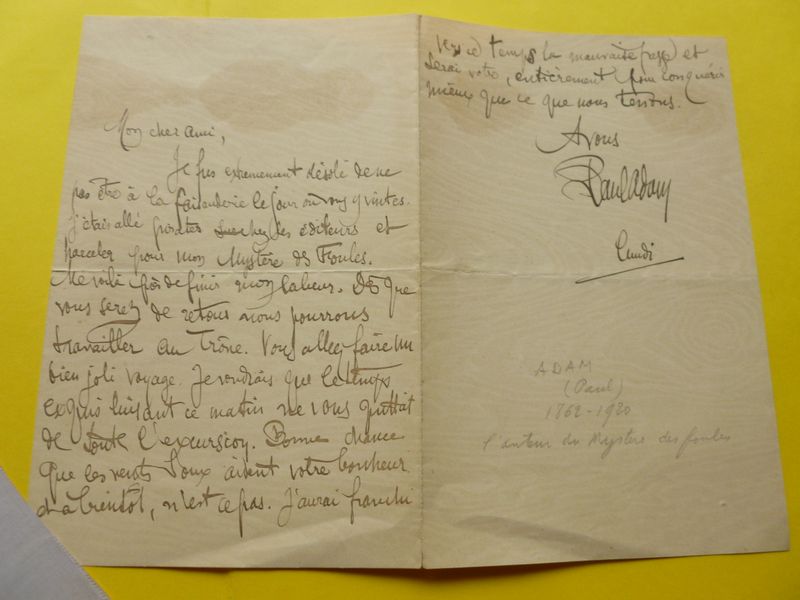 Mon cher Ami,
Je fus extremement désolé de ne
pas être à la faisanderie le jour où vous y vintes.
J'étais allé chez les éditeurs et
pour mon Mystère des Foules.
Me voilà près de finir mon labeur. Dès que
vous serez de retour nous pourrons
travailler au Trône. Vous allez faire un
bien joli voyage. Je voudrais que le temps
exquis luisant ce matin ne vous quittat
de toute l'excursion. Bonne chance
que les vents doux aident votre bonheur
et à bientôt, n'est ce pas. J'aurai franchi
vers ce temps la mauvaise passe et
serai votre, entièrement pour conquérir
mieux que ce que nous tenons.
A vous
Paul Adam
Lundi
ADAM
(Paul)
1862-1920
l'auteur du Mystère des foules